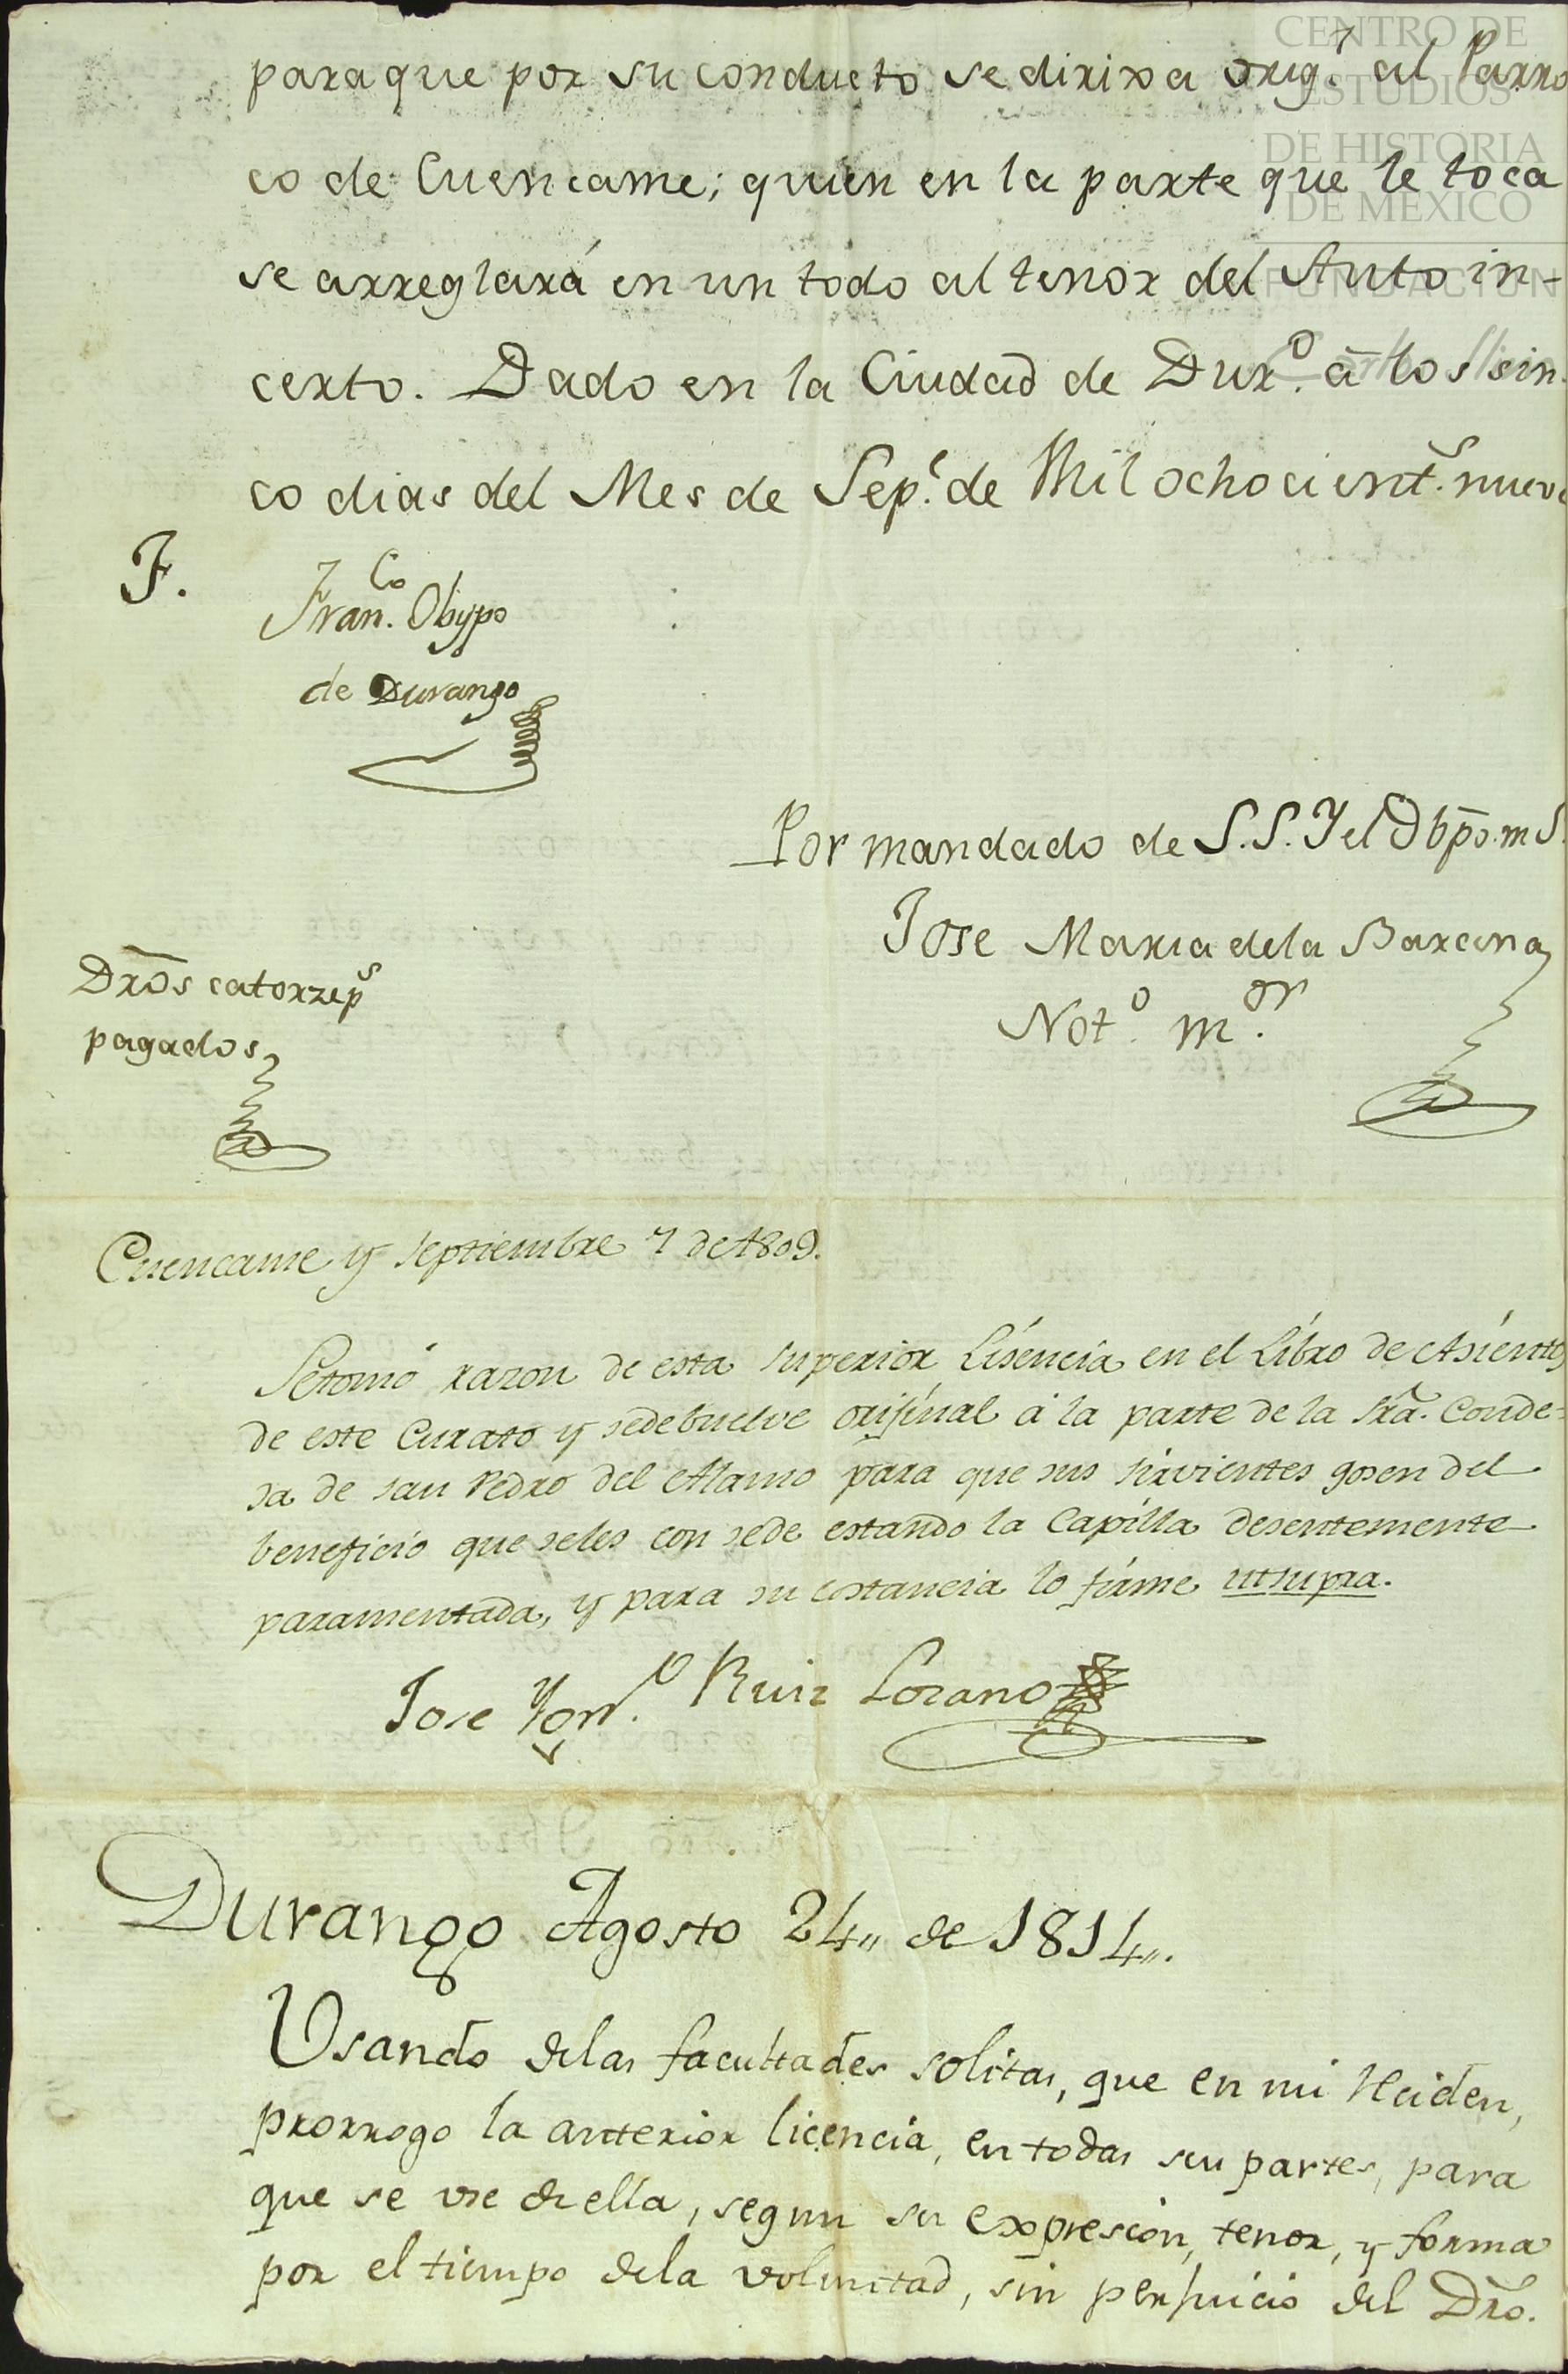 CENTRO DE
ESTUDIOS
DE HISTORIA
DE MEXICO
FUNDACION
para que por su conducto se dirixa orig.l al Parro
co de Cuencame; quien en la parte que le toca
se arreglará en un todo al tenor del Auto in-
certo. Dado en la Ciudad de Dur.o á los sin
co dias del Mes de Sep.e de Mil ochocient.s nueve
F.
Fran.co Obypo
de Durango
Por mandado de S.S.Y el Obpo. m S.
Jose Maria dela Barcena
Not.o m.or
Dros catorze p.s
pagados
Cuencame y Septiembre 7 de 1809.
Setomó razon de esta superior Lisencia en el Libro de Asientos
de este Curato y sedebuelve orijinal á la parte de la Sra. Conde=
sa de San Pedro del Alamo para que sus sirvientes gosen del
beneficio que seles con sede estando la Capilla desentemente
paramentada, y para su costancia lo firme utsupra.
Jose Ygn.o Ruiz Lozano
Durango Agosto 24,, de 1814,,.
Usando delas facultades solitas, que en mi Reciden,
prorrogo la anterior licencia, en todas sus partes, para
que se use de ella, segun su expresion, tenor, y forma
por el tiempo dela voluntad, sin perjuicio del Dro.